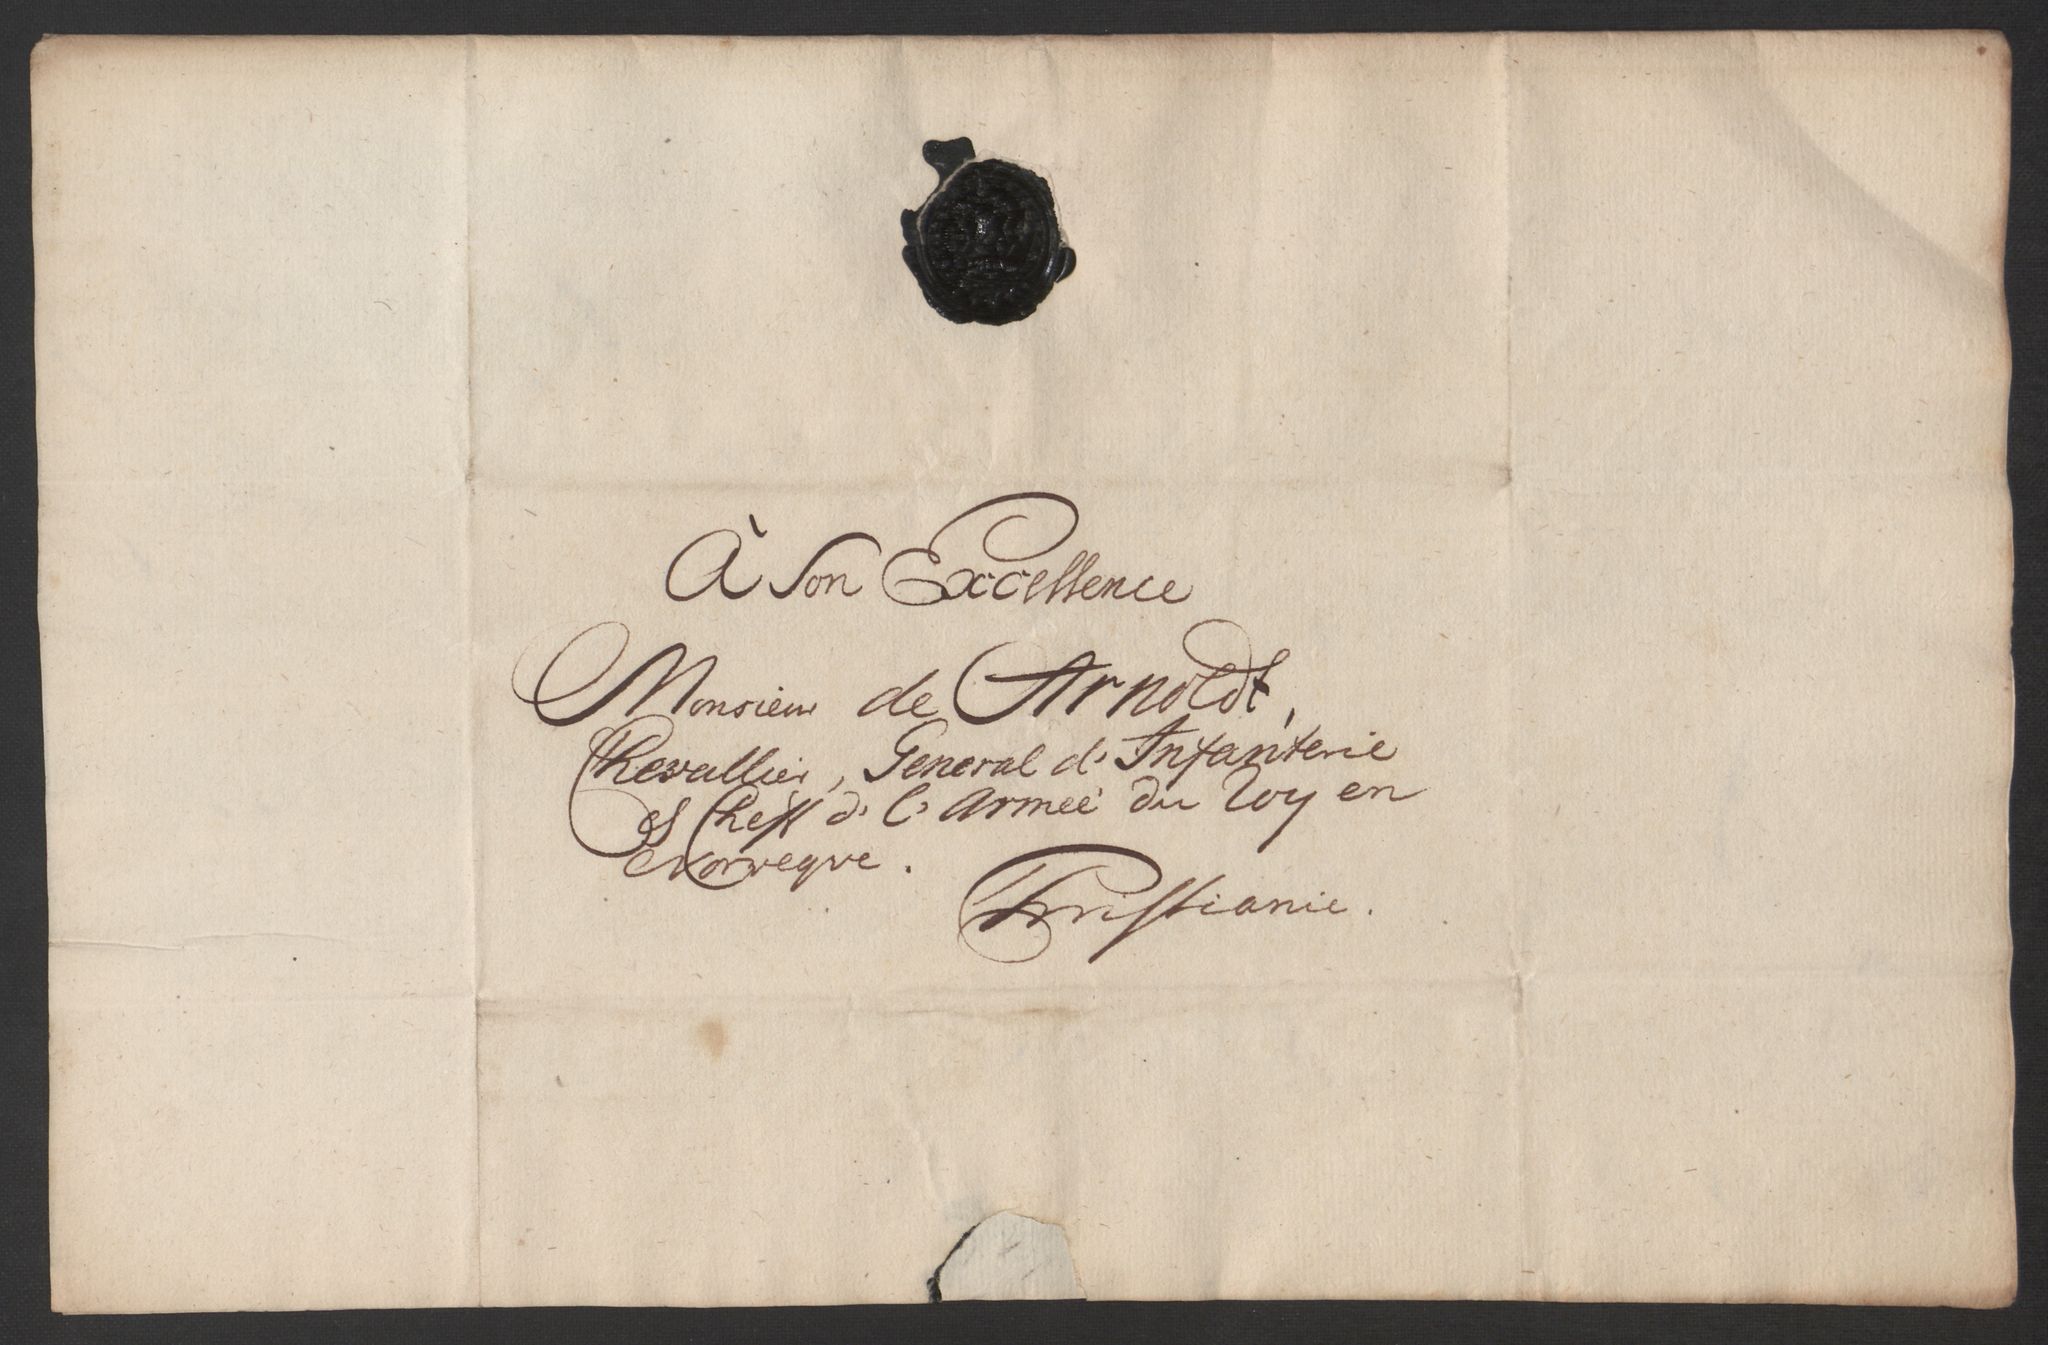 À Son Excellence
Monsieur de Arnoldt,
Chevallier, General d'Infanterie
et Cheff d'l'Armeé du Roy en
Norwegve.
Christianie.